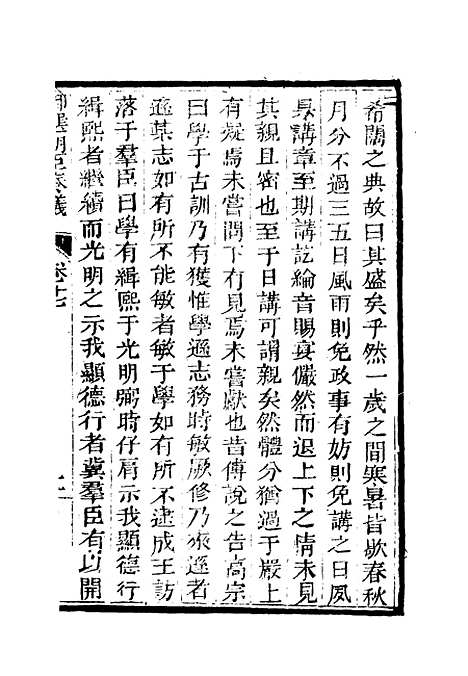 希闊之典故曰其盛矣乎然一歲之間寒暑皆歇春秋
月分不過三五日風雨則免政事有妨則免講之日夙
具講章至期講訖綸音賜宴儼然而退上下之情未見
其親且密也至于日講可謂親矣然體分猶過于嚴上
有疑焉未嘗問下有見焉未嘗獻也昔傅說之告高宗
曰學于古訓乃有獲惟學遜志務時敏厥修乃來遜者
遜其志如有所不能敏者敏于學如有所不逮成王訪
落于羣臣曰學有緝熙于光明弼時仔肩示我顯德行
緝熙者繼續而光明之示我顯德行者冀羣臣有以開
明臣奏議
卷十七